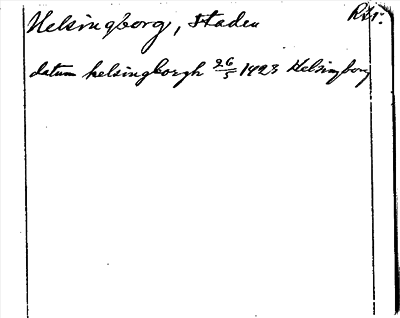 Helsingborg, Staden RAr.
datum helsingborgh 26/5 1423 Helsingborg